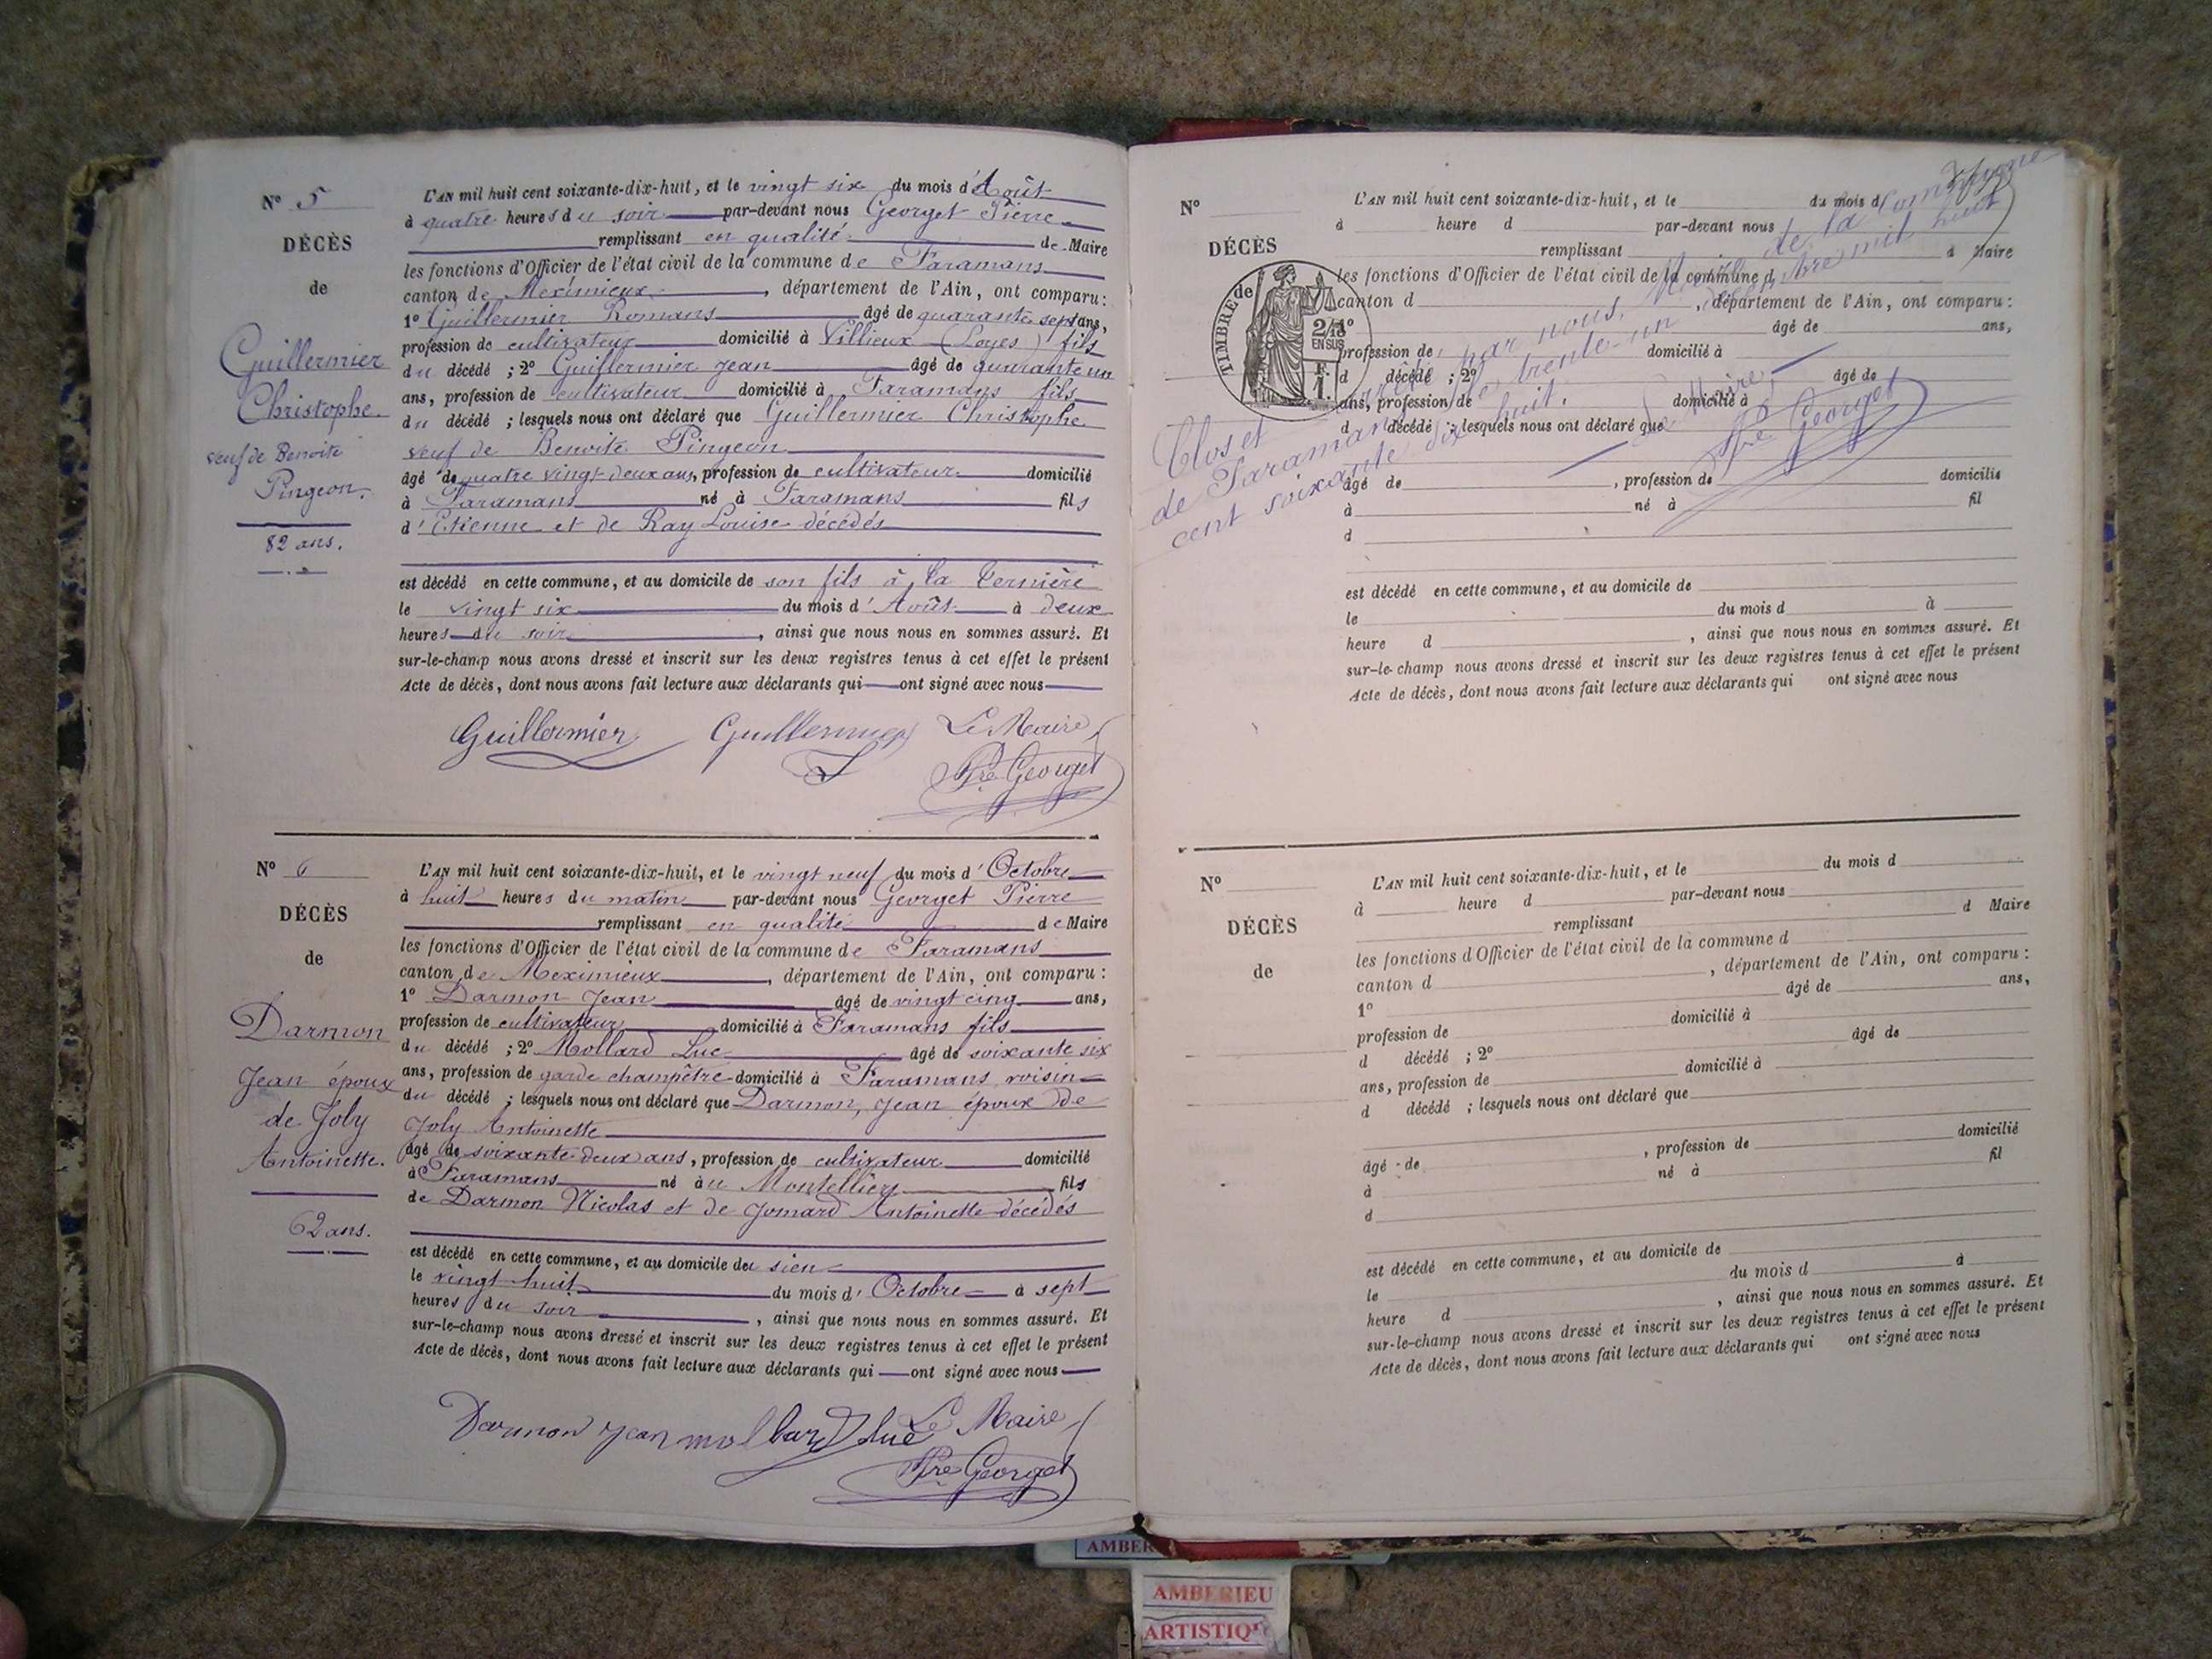 N° 5
DÉCÈS
de
Guillermier
Christophe.
veuf de Benoite
Pingeon.
82 ans.
L'AN mil huit cent soixante-dix-huit, et le vingt six du mois d'Août
à quatre heures du soir par-devant nous Georget Pierre
remplissant en qualité de Maire
les fonctions d'Officier de l'état civil de la commune de Faramans
canton de Meximieux, département de l'Ain, ont comparu :
1° Guillermier Romans âgé de quarante sept ans,
profession de cultivateur domicilié à Villieux (Loyes) fils
du décédé ; 2° Guillermier Jean âgé de quarante un
ans, profession de cultivateur domicilié à Faramans fils
du décédé ; lesquels nous ont déclaré que Guillermier Christophe
veuf de Benoite Pingeon
âgé de quatre vingt deux ans, profession de cultivateur domicilié
à Faramans né à Faramans fils
d'Etienne et de Ray Louise décédés
est décédé en cette commune, et au domicile de son fils à la
le vingt six du mois d'Août à deux
heures du soir, ainsi que nous nous en sommes assuré. Et
sur-le-champ nous avons dressé et inscrit sur les deux registres tenus à cet effet le présent
Acte de décès, dont nous avons fait lecture aux déclarants qui ont signé avec nous
Guillermier Guillermier Le Maire
Pre Georget
N° 6
DÉCÈS
de
Darmon
Jean époux
de Joly
Antoinette.
62 ans.
L'AN mil huit cent soixante-dix-huit, et le vingt neuf du mois d'Octobre
à huit heures du matin par-devant nous Georget Pierre
remplissant en qualité de Maire
les fonctions d'Officier de l'état civil de la commune de Faramans
canton de Meximieux, département de l'Ain, ont comparu :
1° Darmon Jean âgé de vingt cinq ans,
profession de cultivateur domicilié à Faramans fils
du décédé ; 2° Mollard Luc âgé de soixante six
ans, profession de garde champêtre domicilié à Faramans voisin
du décédé ; lesquels nous ont déclaré que Darmon, Jean époux de
Joly Antoinette
âgé de soixante deux ans, profession de cultivateur domicilié
à Faramans né au Montellier fils
de Darmon Nicolas et de Jomard Antoinette décédés
est décédé en cette commune, et au domicile du sien
le vingt huit du mois d'Octobre à sept
heures du soir, ainsi que nous nous en sommes assuré. Et
sur-le-champ nous avons dressé et inscrit sur les deux registres tenus à cet effet le présent
Acte de décès, dont nous avons fait lecture aux déclarants qui ont signé avec nous
Darmon Jean mollard luc Le Maire
Pre Georget
N°
DÉCÈS
TIMBRE de
2/10
EN SUS
F.
1.
L'AN mil huit cent soixante-dix-huit, et le du mois d
à heure d par-devant nous
remplissant d Maire
les fonctions d'Officier de l'état civil de la commune d
canton d , département de l'Ain, ont comparu :
1° âgé de ans,
profession de domicilié à
d décédé ; 2° âgé de
ans, profession de domicilié à
d décédé ; lesquels nous ont déclaré que
âgé de , profession de domicilié
à né à fil
d
est décédé en cette commune, et au domicile de
le du mois d à
heure d , ainsi que nous nous en sommes assuré. Et
sur-le-champ nous avons dressé et inscrit sur les deux registres tenus à cet effet le présent
Acte de décès, dont nous avons fait lecture aux déclarants qui ont signé avec nous
Clos et par nous, Maire de la commune
de Faramans le trente-un décembre mil huit
cent soixante dix huit.
Le Maire,
Pre Georget
N°
DÉCÈS
de
L'AN mil huit cent soixante-dix-huit, et le du mois d
à heure d par-devant nous
remplissant d Maire
les fonctions d'Officier de l'état civil de la commune d
canton d , département de l'Ain, ont comparu :
1° âgé de ans,
profession de domicilié à
d décédé ; 2° âgé de
ans, profession de domicilié à
d décédé ; lesquels nous ont déclaré que
âgé de , profession de domicilié
à né à fil
d
est décédé en cette commune, et au domicile de
le du mois d à
heure d , ainsi que nous nous en sommes assuré. Et
sur-le-champ nous avons dressé et inscrit sur les deux registres tenus à cet effet le présent
Acte de décès, dont nous avons fait lecture aux déclarants qui ont signé avec nous
AMBER
AMBERIEU
ARTISTIQ